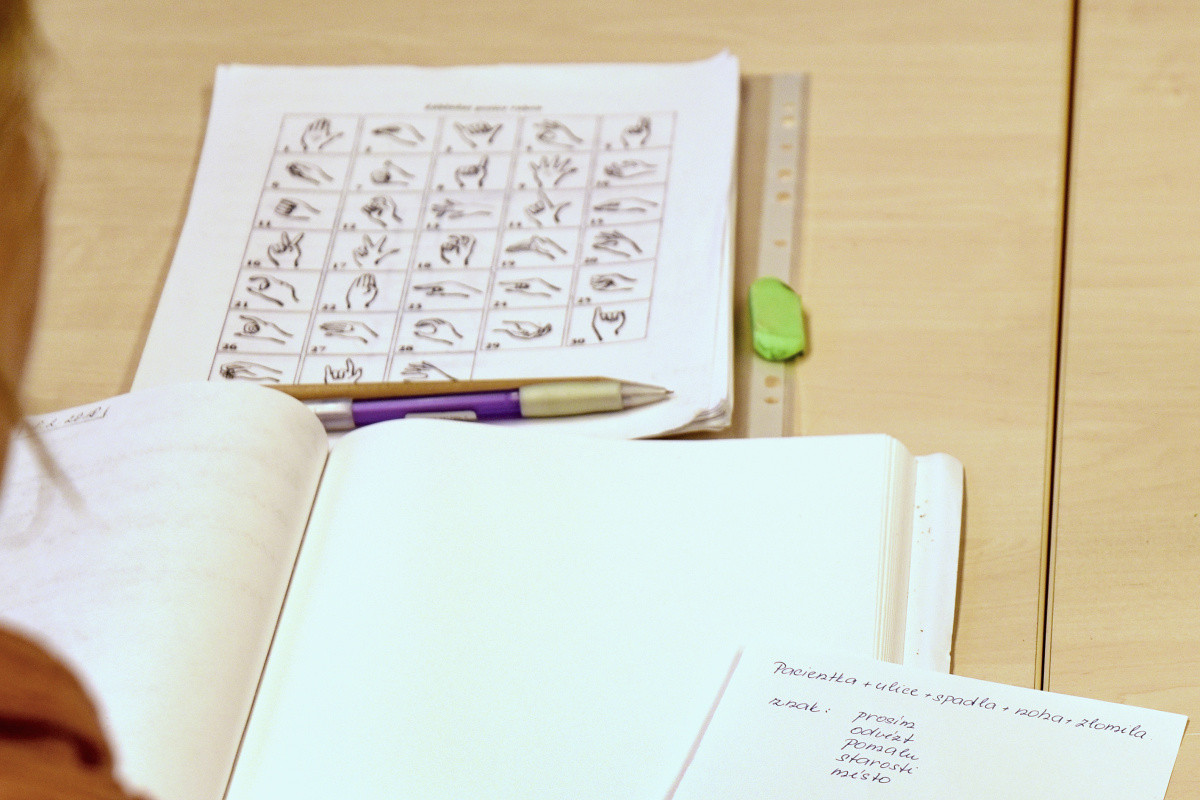 1 2 3 4 5
6 7 8 9 10
11 12 13 14 15
16 17 18 19 20
21 22 23 24 25
26 27 28 29 30
Pacientka + ulice + spadla + noha + zlomila
znak: prosím
odvézt
pomalu
starosti
místo